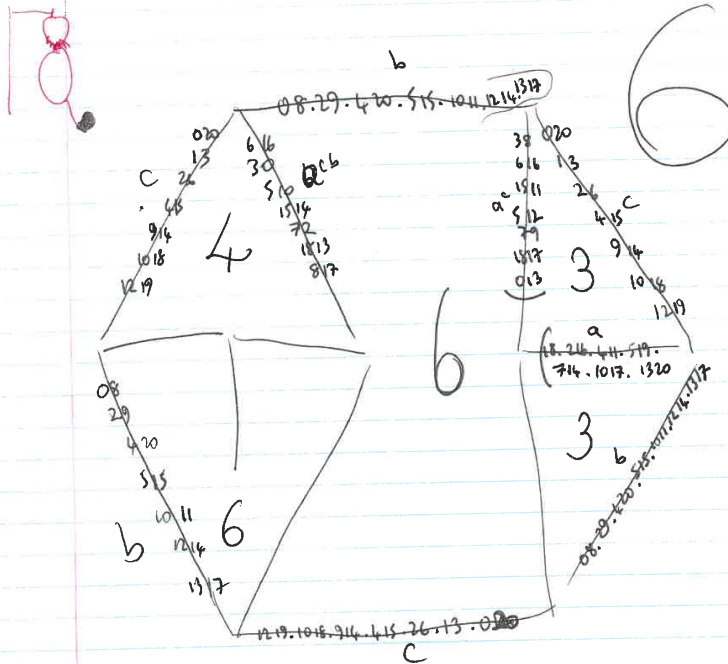 b
08.29.420.515.1011.1214.1317
6
020
13
26
415
914
1018
1219
c
4
616
30
510
1514
72
1813
817
38
616
1511
512
79
1817
013
a
c
020
13
26
415
914
1018
1219
c
3
6
a
18.216.411.519.
714.1017.1320
3
b
08.29.420.515.1011.1214.1317
08
29
420
515
1011
1214
1317
b
6
1219.1018.914.415.26.13.0
c